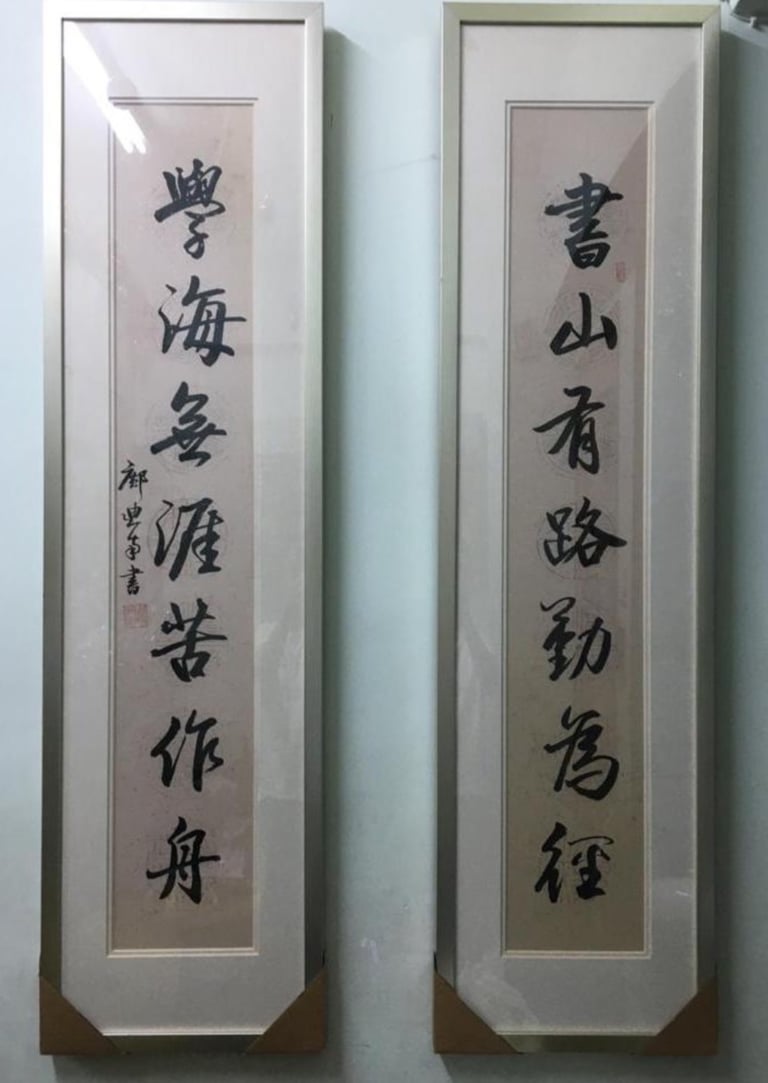 書山有路勤為徑
學海無涯苦作舟
鄺典南書